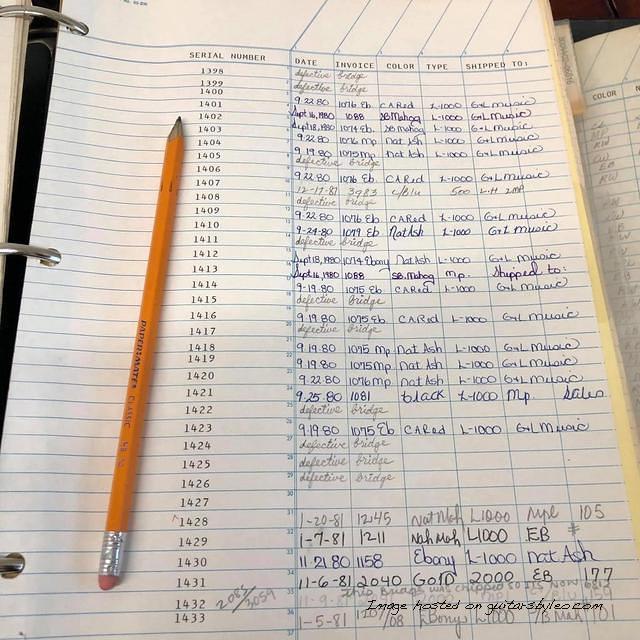 SERIAL NUMBER DATE INVOICE COLOR TYPE SHIPPED TO:
1398 defective bridge
1399
1400 defective bridge
1401 9.22.80 1076 Eb. CARed L-1000 G+L Music
1402 Sept 16, 1980 1088 SB Mahog L-1000 G+L Music
1403 Sept 18, 1980 1074 Eb. SB Mahog L-1000 G+L Music
1404 9.22.80 1076 mp Nat Ash L-1000 G+L Music
1405 9.19.80 1075 mp Nat Ash L-1000 G+L Music
defective bridge
1406 9.22.80 1076 Eb. CARed L-1000 G+L Music
1407 12-17-81 3983 c/Blu 500 L.H
1408 defective bridge
1409 9.22.80 1076 Eb CARed L-1000 G+L Music
1410 9-24-80 1079 Eb Nat Ash L-1000 G+L Music
1411 defective bridge
1412 Sept 18, 1980 1074 Ebony Nat Ash L-1000 G+L Music
1413 Sept. 16, 1980 1088 SB. Mahog mp. Shipped to:
1414 9-19.80 1075 Eb CARed L-1000 G+L Music
1415 defective bridge
1416 9.19.80 1075 Eb CARed L-1000 G+L Music
1417 defective bridge
1418 9.19.80 1075 mp Nat Ash L-1000 G+L Music
1419 9.19.80 1075 mp Nat Ash L-1000 G+L Music
1420 9.22.80 1076 mp Nat Ash L-1000 G+L Music
1421 9.25.80 1081 black L-1000 mp. Sales
1422 defective bridge
1423 9.19.80 1075 Eb CARed L-1000 G+L Music
1424 defective bridge
1425 defective bridge
1426 defective bridge
1427
1428 1-20-81 1245 Nat Mah L1000 Mpl 105
1429 1-7-81 1211 Nah Mah L1000 EB #
1430 11.21.80 1158 Ebony L-1000 nat Ash
1431 11-6-81 2040 Gold 2000 EB 177
1432
1433 1-5-81 Ebony L1000
PAPER MATE CLASSIC
COLOR
Image hosted on guitarsbyleo.com